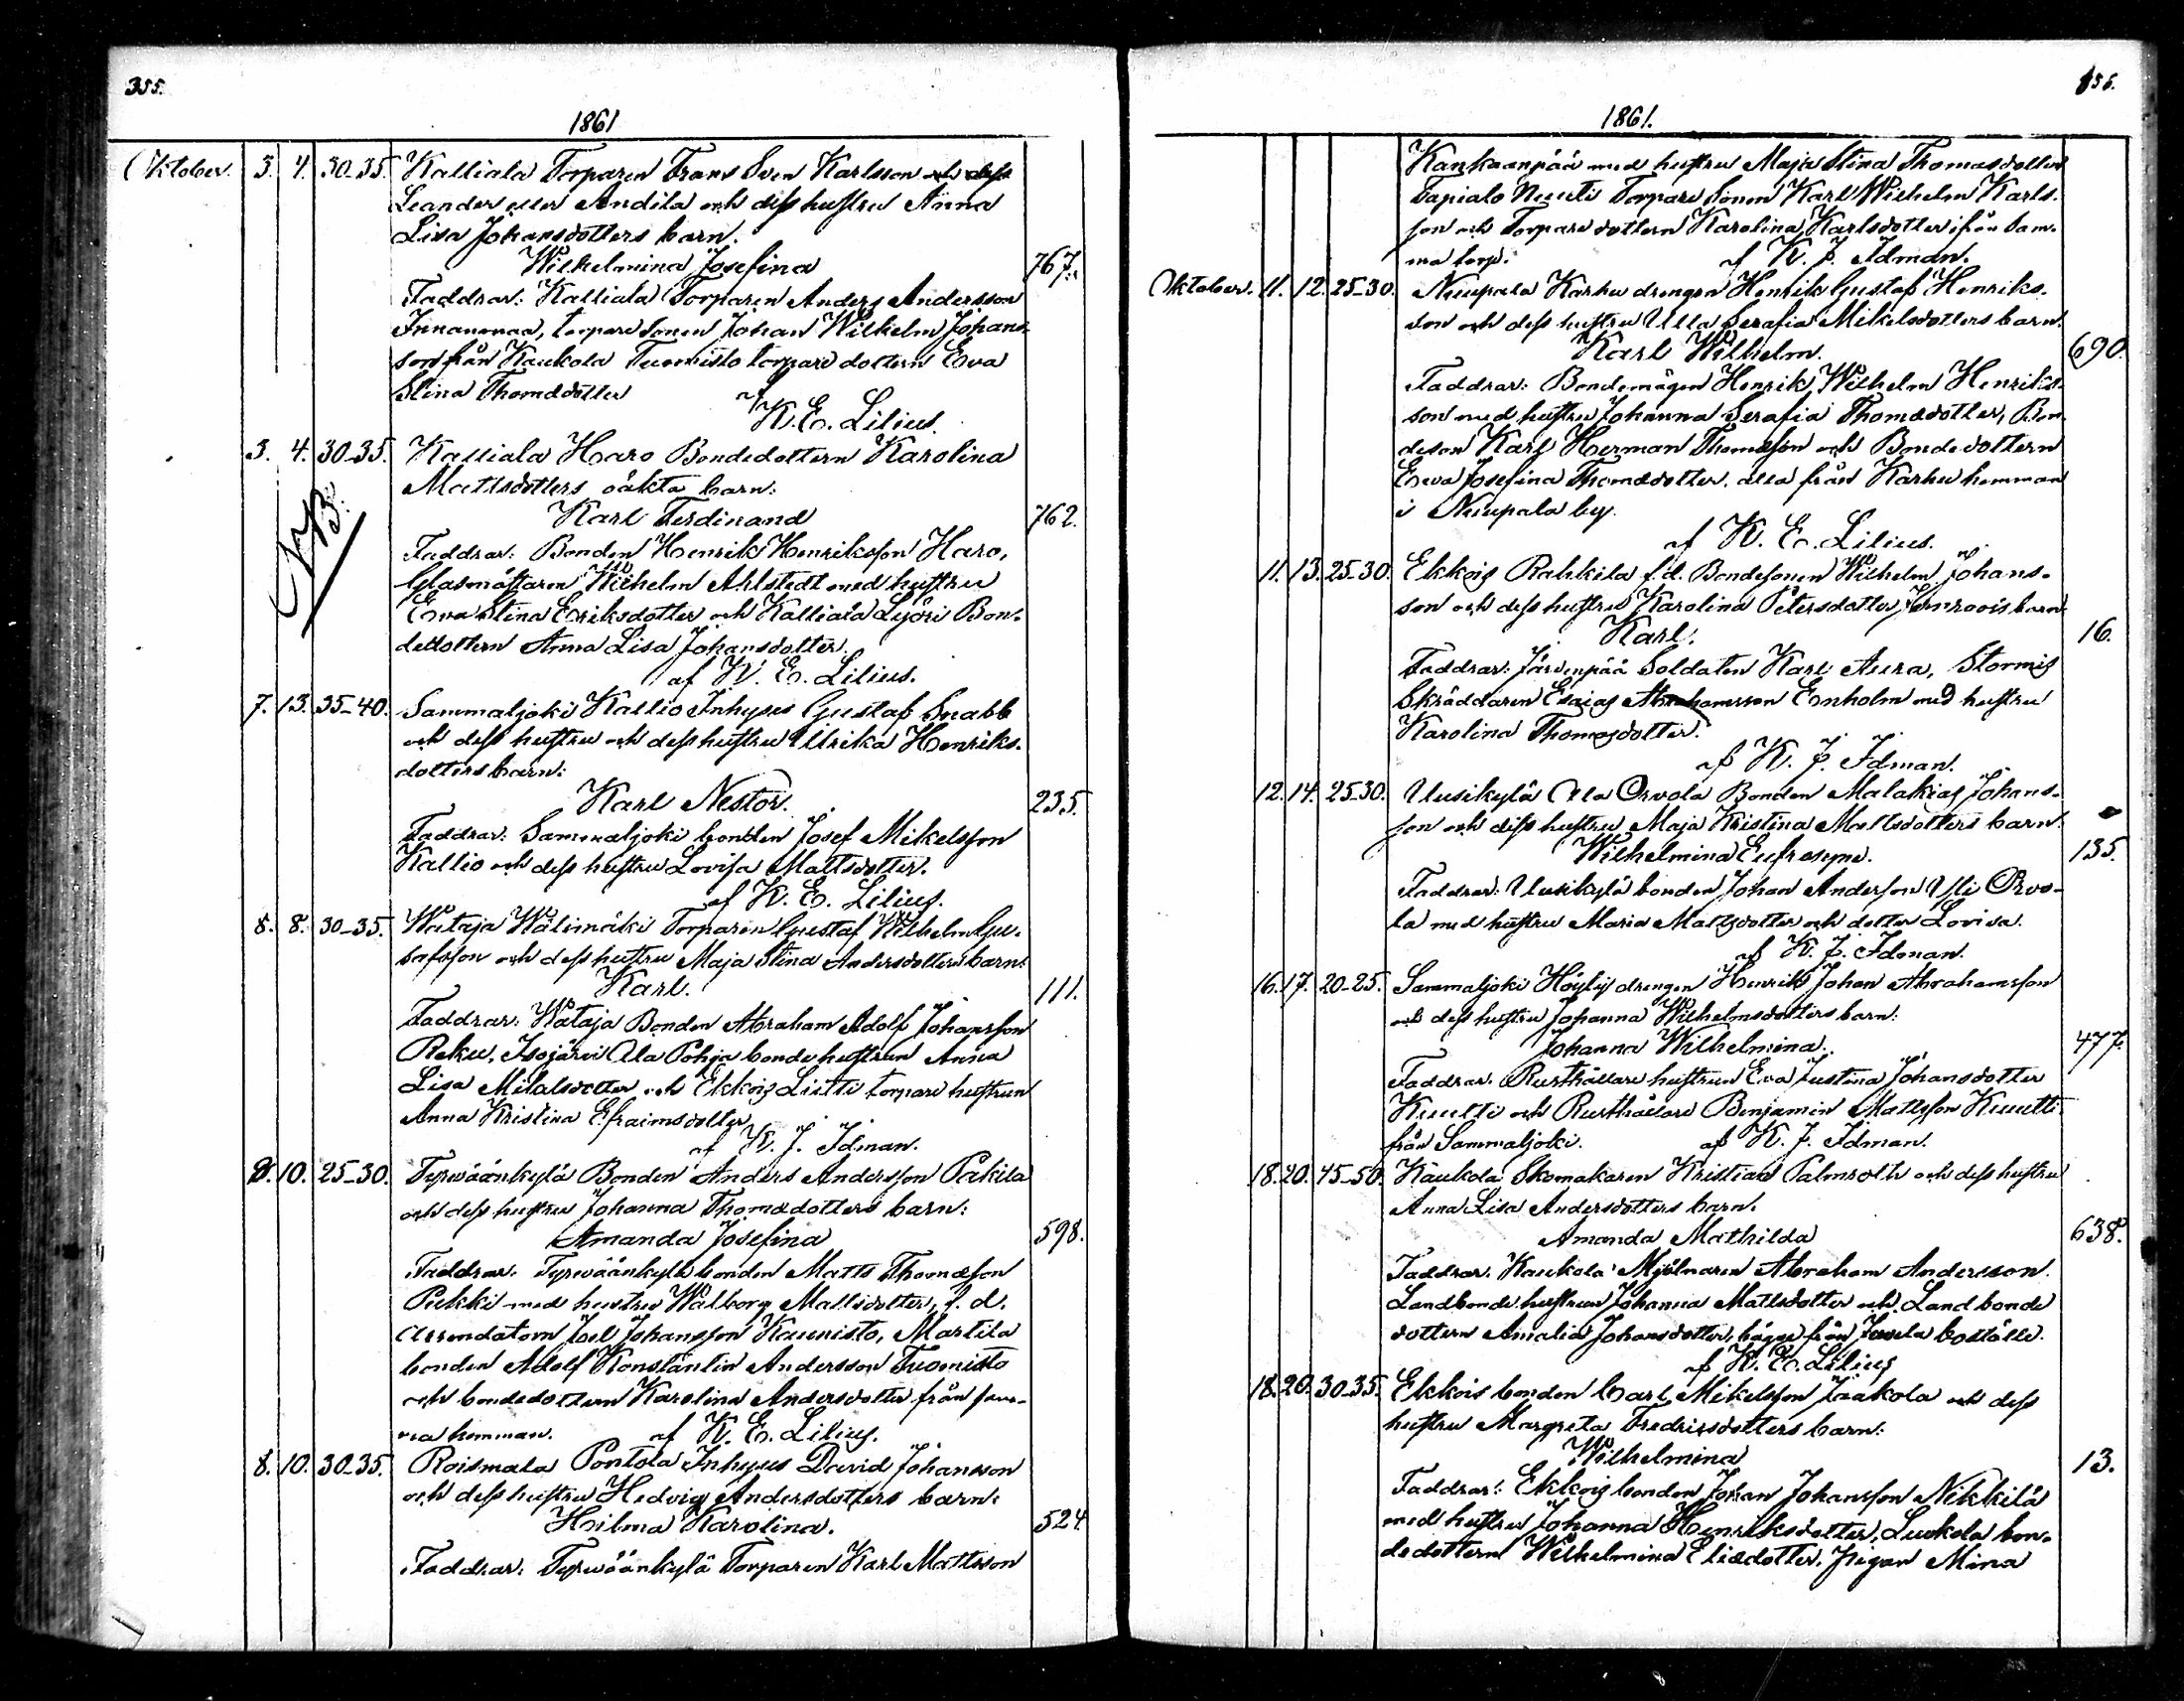 355.
1861
Oktober. 3. 4. 30-35. Kalliala Torparen Frans Sven Karlsson och dess
Leander eller Andila och dess hustru Anna
Lisa Johansdotters barn.
Wilhelmina Josefina 767.
Faddrar: Kalliala Torparen Anders Andersson
Innanmaa, torpare sonen Johan Wilhelm Johans-
son från Kaukola Tuomisto torpare dottern Eva
Stina Thomædotter af
K. E. Lilius.
3. 4. 30-35. Kalliala Haro Bondedottern Karolina
Mattsdotters oäkta barn:
NB.
Karl Ferdinand 762.
Faddrar: Bonden Henrik Henriksson Haro,
Glasmästaren Wilhelm Ahlstedt med hustru
Eva Stina Eriksdotter och Kalliala Liöri Bon-
dedottern Anna Lisa Johansdotter.
af K. E. Lilius.
7. 13. 35-40. Sammaljoki Kallio Inhyses Gustaf Snabb
och dess hustru och dess hustru Ulrika Henriks-
dotters barn:
Karl Nestor. 235.
Faddrar: Sammaljoki bonden Josef Mikelsson
Kallio och dess hustru Lovisa Mattsdotter.
af K. E. Lilius.
8. 8. 30-35. Wataja Wälimäki Torparen Gustaf Wilhelm Gu-
stafsson och dess hustru Maja Stina Andersdotters barn:
Karl. 111.
Faddrar: Wataja Bonden Abraham Adolf Johansson
Reku, Isojärvi Ala Pohja bonde hustrun Anna
Lisa Mikalsdotter och Ekkois Liitti torpare hustrun
Anna Kristina Efraimsdotter
af K. J. Idman.
8. 10. 25-30. Tyrväänkylä Bonden Anders Andersson Pakila
och dess hustru Johanna Thomædotters barn:
Amanda Josefina 598.
Faddrar. Tyrväänkylä bonden Matts Thomæson
Pukki med hustru Walborg Mattsdotter, f. d.
Arrendatorn Joel Johansson Kaunisto, Martila
bonden Adolf Konstantin Andersson Tuomisto
och bondedottern Karolina Andersdotter från sam-
ma hemman. af K. E. Lilius.
8. 10. 30-35. Roismala Pontola Inhyses David Johansson
och dess hustru Hedvig Andersdotters barn:
Hilma Karolina. 524
Faddrar: Tyrväänkylä Torparen Karl Mattsson
356.
1861.
Kankaanpää med hustru Maja Stina Thomasdotter
Tapialo Torpare sonen Karl Wilhelm Karls-
son och Torpare dottern Karolina Karlsdotter ifrån sam-
ma torp. af K. J. Idman.
Oktober. 11. 12. 25-30. Nuupala Karhu drengen Henrik Gustaf Henriks-
son och dess hustru Ulla Serafia Mikelsdotters barn.
Karl Wilhelm. 690.
Faddrar: Bondemågen Henrik Wilhelm Henriks-
son med hustru Johanna Serafia Thomædotter, Bon-
deson Karl Herman Thomæson och Bondedottern
Eva Josefina Thomædotter. alla från Karhu hemman
i Nuupala by.
af K. E. Lilius.
11. 13. 25-30. Ekkois Rahkila f.d. Bondesonen Wilhelm Johans-
son och dess hustru Karolina Petersdotter barn
Karl. 16.
Faddrar: Järvenpää Soldaten Karl Aura, Stormis
Skräddaren Esaias Abrahamsson Enholm med hustru
Karolina Thomasdotter.
af K. J. Idman.
12. 14. 25-30. Uusikylä Ala Orvola Bonden Malakias Johans-
son och dess hustru Maja Kristina Mattsdotters barn.
Wilhelmina Eufrosyne. 135.
Faddrar: Uusikylä bonden Johan Andersson Yli Orvo-
la med hustru Maria Mattsdotter och dotter Lovisa.
af K. J. Idman.
16. 17. 20-25. Sammaljoki Höylij drengen Henrik Johan Abrahamsson
och dess hustru Johanna Wilhelmsdotters barn:
Johanna Wilhelmina. 477.
Faddrar. Rusthållare hustrun Eva Justina Johansdotter
Knutti och Rusthållare Benjamin Mattsson Knutti
från Sammaljoki. af K. J. Idman.
18. 20. 45-50. Kaukola Skomakaren Kristian Palmroth och dess hustru
Anna Lisa Andersdotters barn.
Amanda Mathilda 638.
Faddrar. Kaukola Mjölnaren Abraham Andersson.
Landbonde hustrun Johanna Mattsdotter och Landbonde
dottern Amalia Johansdotter, bägge från Junela boställe.
af K. E. Lilius
18. 20. 30-35. Ekkois bonden Carl Mikelsson Jaakola och dess
hustru Margreta Fredriksdotters barn:
Wilhelmina 13.
Faddrar: Ekkois bonden Johan Johansson Nikkilä
med hustru Johanna Henriksdotter, Luukola bon-
dedottern Wilhelmina Eliædotter, Pigan Mina